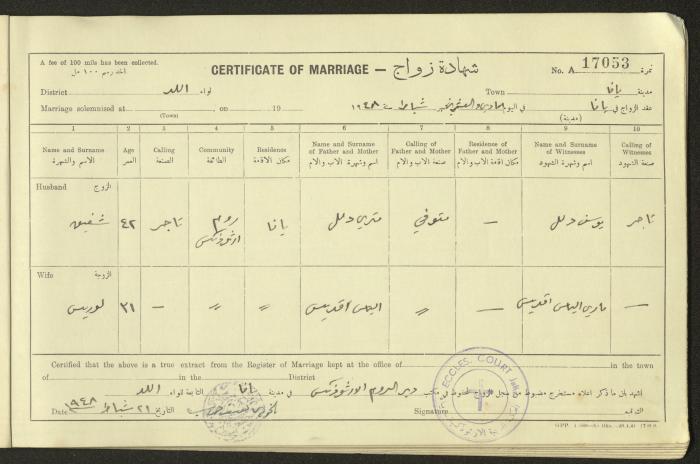 A fee of 100 mils has been collected.
CERTIFICATE OF MARRIAGE — شهادة زواج
No. A 17053 نمرة
District لواء اللد
Town مدينة يافا
Marriage solemnised at , on 19 عقد الزواج في يافا في اليوم شباط سنة ١٩٤٨
(Town) (مدينة)
1 2 3 4 5 6 7 8 9 10
Name and Surname Age Calling Community Residence Name and Surname of Father and Mother Calling of Father and Mother Residence of Father and Mother Name and Surname of Witnesses Calling of Witnesses
الاسم والشهرة العمر الصنعة الطائفة مكان الاقامة اسم وشهرة الاب والام صنعة الاب والام مكان اقامة الاب والام اسم وشهرة الشهود صنعة الشهود
Husband الزوج
شفيق ٤٢ تاجر روم ارثوذكس يافا متري متوفي — يوسف تاجر
Wife الزوجة
لوريس ٣١ — " " الياس اقديس " — ماري الياس اقديس —
Certified that the above is a true extract from the Register of Marriage kept at the office of in the town
of in the District اشهد بان ما ذكر اعلاه مستخرج مضبوط من سجل الزواج المحفوظ في مكتب دير الروم الارثوذكس في مدينة يافا التابعة لواء اللد
Date التاريخ ٢١ شباط ١٩٤٨ Signature التوقيع
ECCLES. COURT